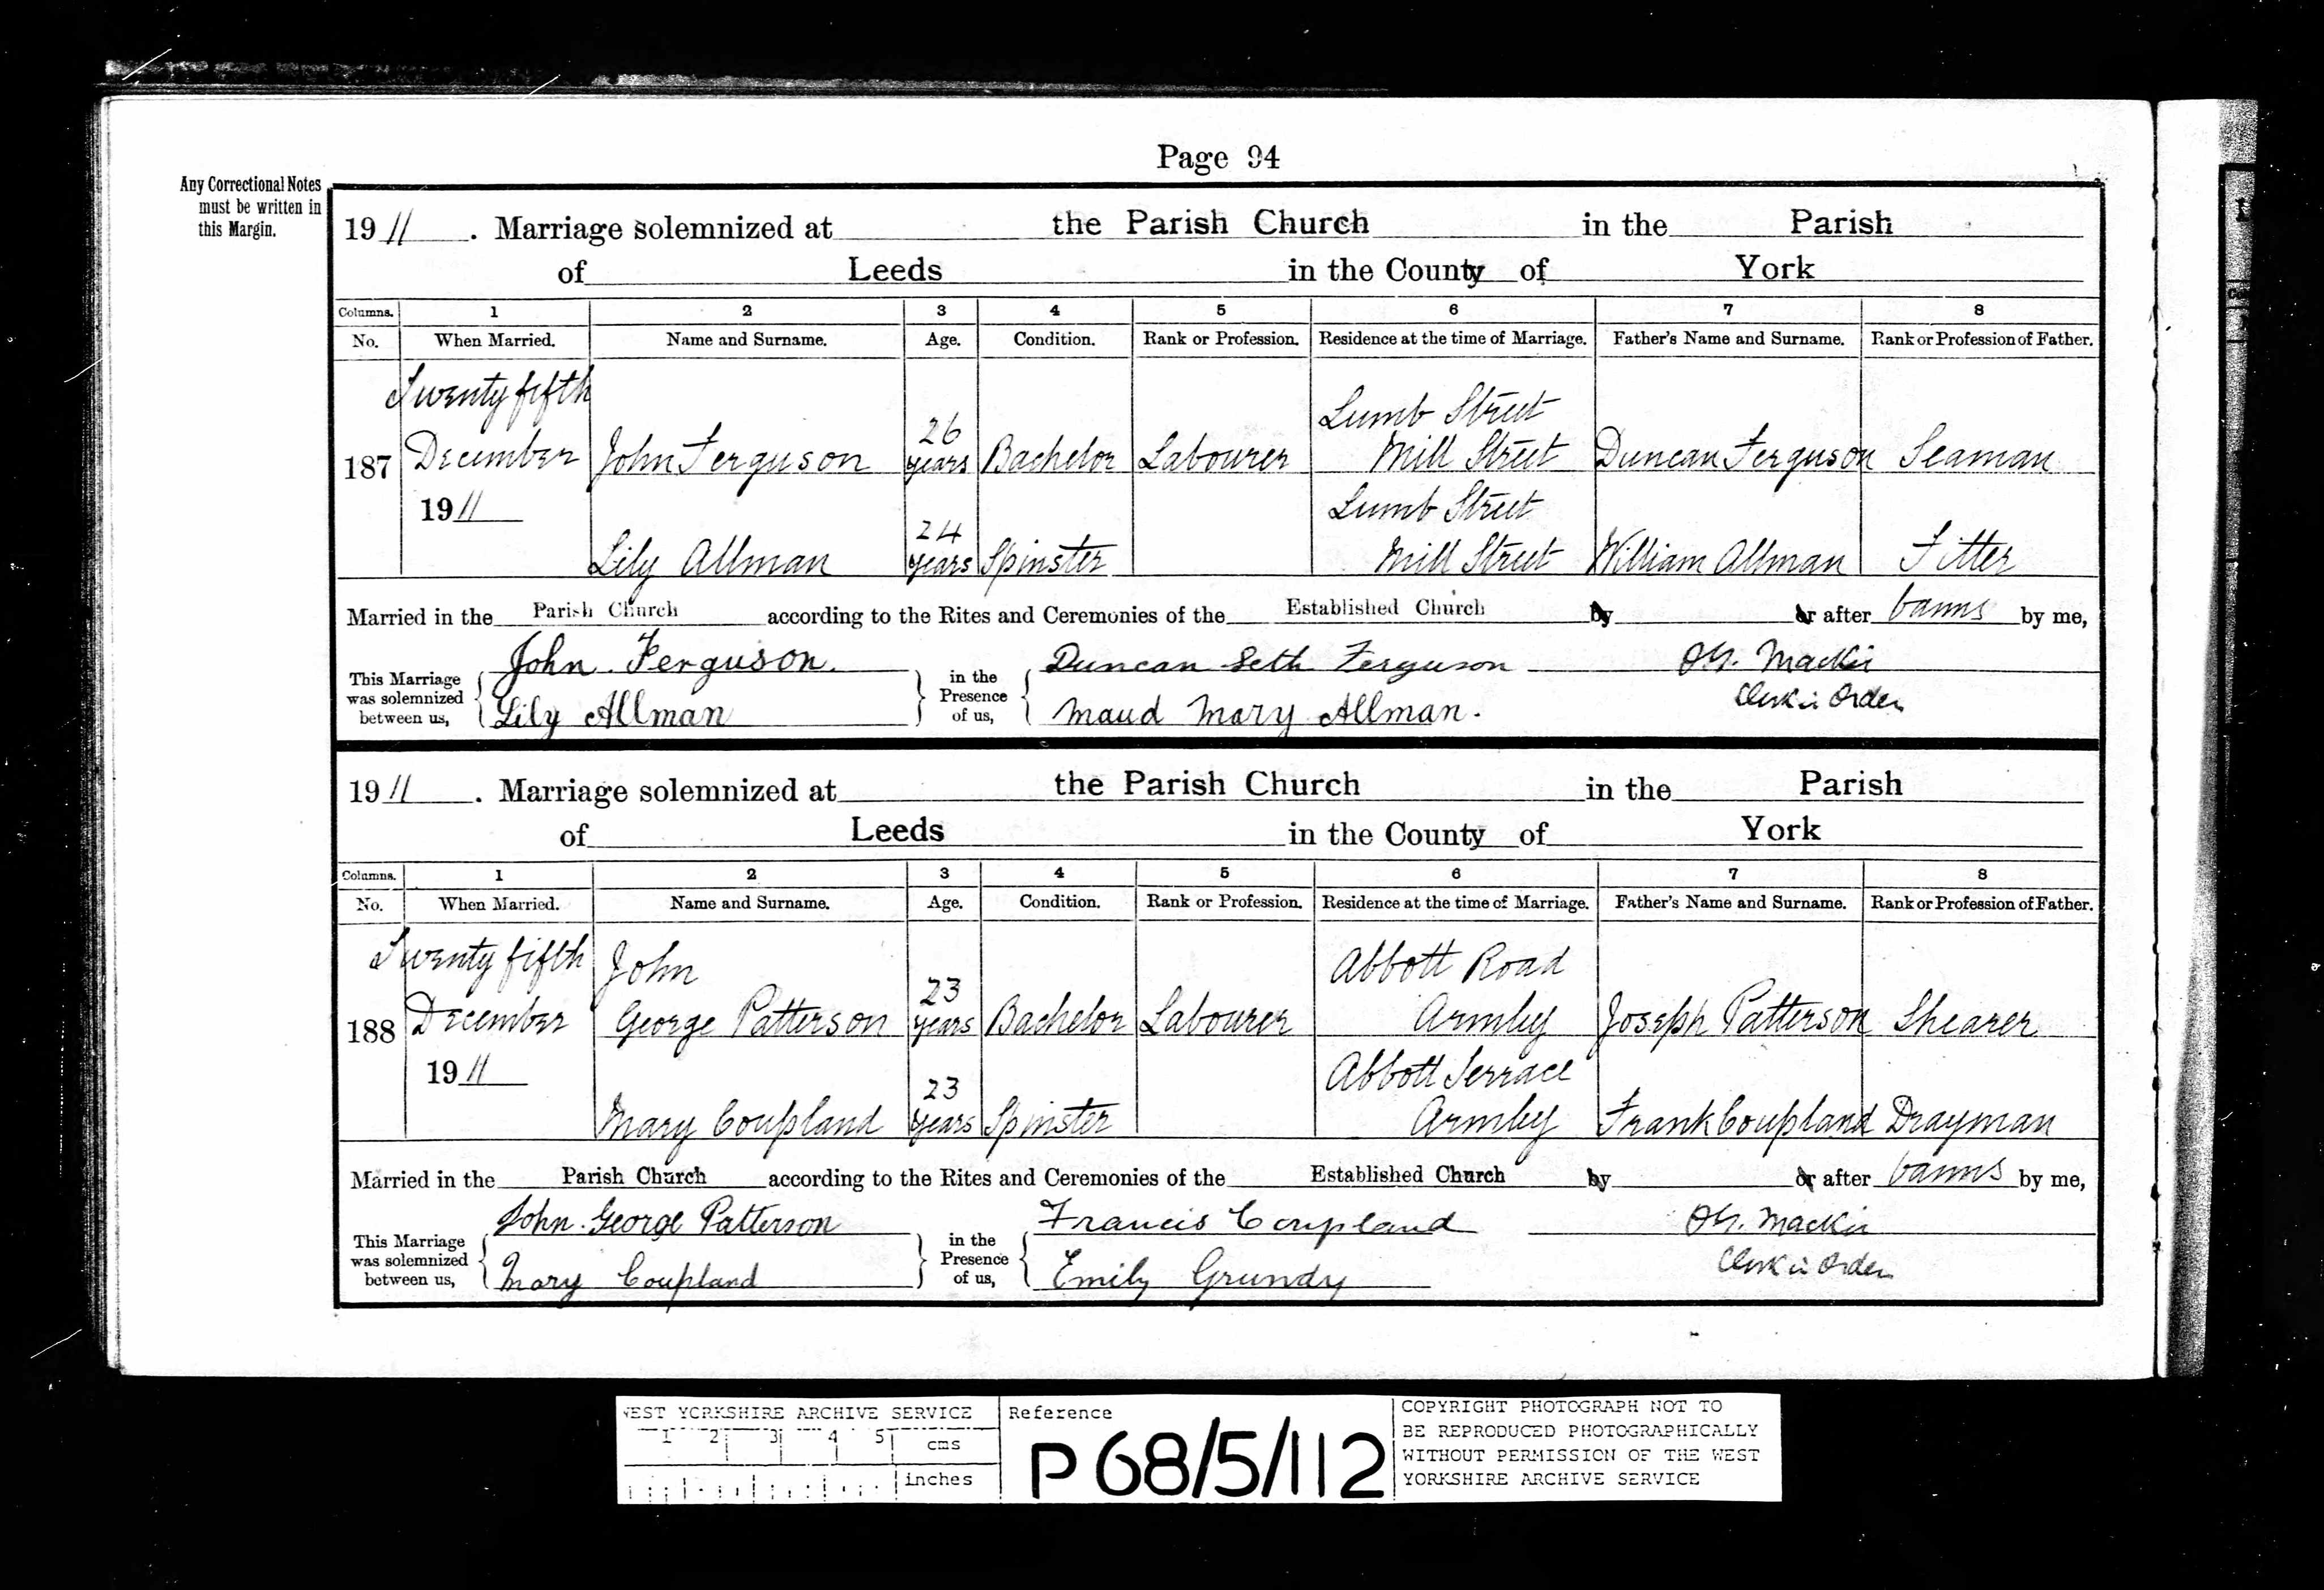 Page 94
Any Correctional Notes
must be written in
this Margin.
1911. Marriage solemnized at the Parish Church in the Parish
of Leeds in the County of York
Columns. 1 2 3 4 5 6 7 8
No. When Married. Name and Surname. Age. Condition. Rank or Profession. Residence at the time of Marriage. Father's Name and Surname. Rank or Profession of Father.
187 Twenty fifth December 1911 John Ferguson 26 years Bachelor Labourer Lumb Street Mill Street Duncan Ferguson Seaman
Lily Allman 24 years Spinster Lumb Street Mill Street William Allman Fitter
Married in the Parish Church according to the Rites and Ceremonies of the Established Church by or after banns by me,
This Marriage was solemnized between us, John Ferguson. Lily Allman in the Presence of us, Duncan Seth Ferguson Maud Mary Allman. Mackie Clerk in Orders
1911. Marriage solemnized at the Parish Church in the Parish
of Leeds in the County of York
Columns. 1 2 3 4 5 6 7 8
No. When Married. Name and Surname. Age. Condition. Rank or Profession. Residence at the time of Marriage. Father's Name and Surname. Rank or Profession of Father.
188 Twenty fifth December 1911 John George Patterson 23 years Bachelor Labourer Abbott Road Armley Joseph Patterson Shearer
Mary Coupland 23 years Spinster Abbott Terrace Armley Frank Coupland Drayman
Married in the Parish Church according to the Rites and Ceremonies of the Established Church by or after banns by me,
This Marriage was solemnized between us, John George Patterson Mary Coupland in the Presence of us, Francis Coupland Emily Grundy Mackie Clerk in Orders
WEST YORKSHIRE ARCHIVE SERVICE
1 2 3 4 5 cms
inches
Reference
P68/5/112
COPYRIGHT PHOTOGRAPH NOT TO
BE REPRODUCED PHOTOGRAPHICALLY
WITHOUT PERMISSION OF THE WEST
YORKSHIRE ARCHIVE SERVICE